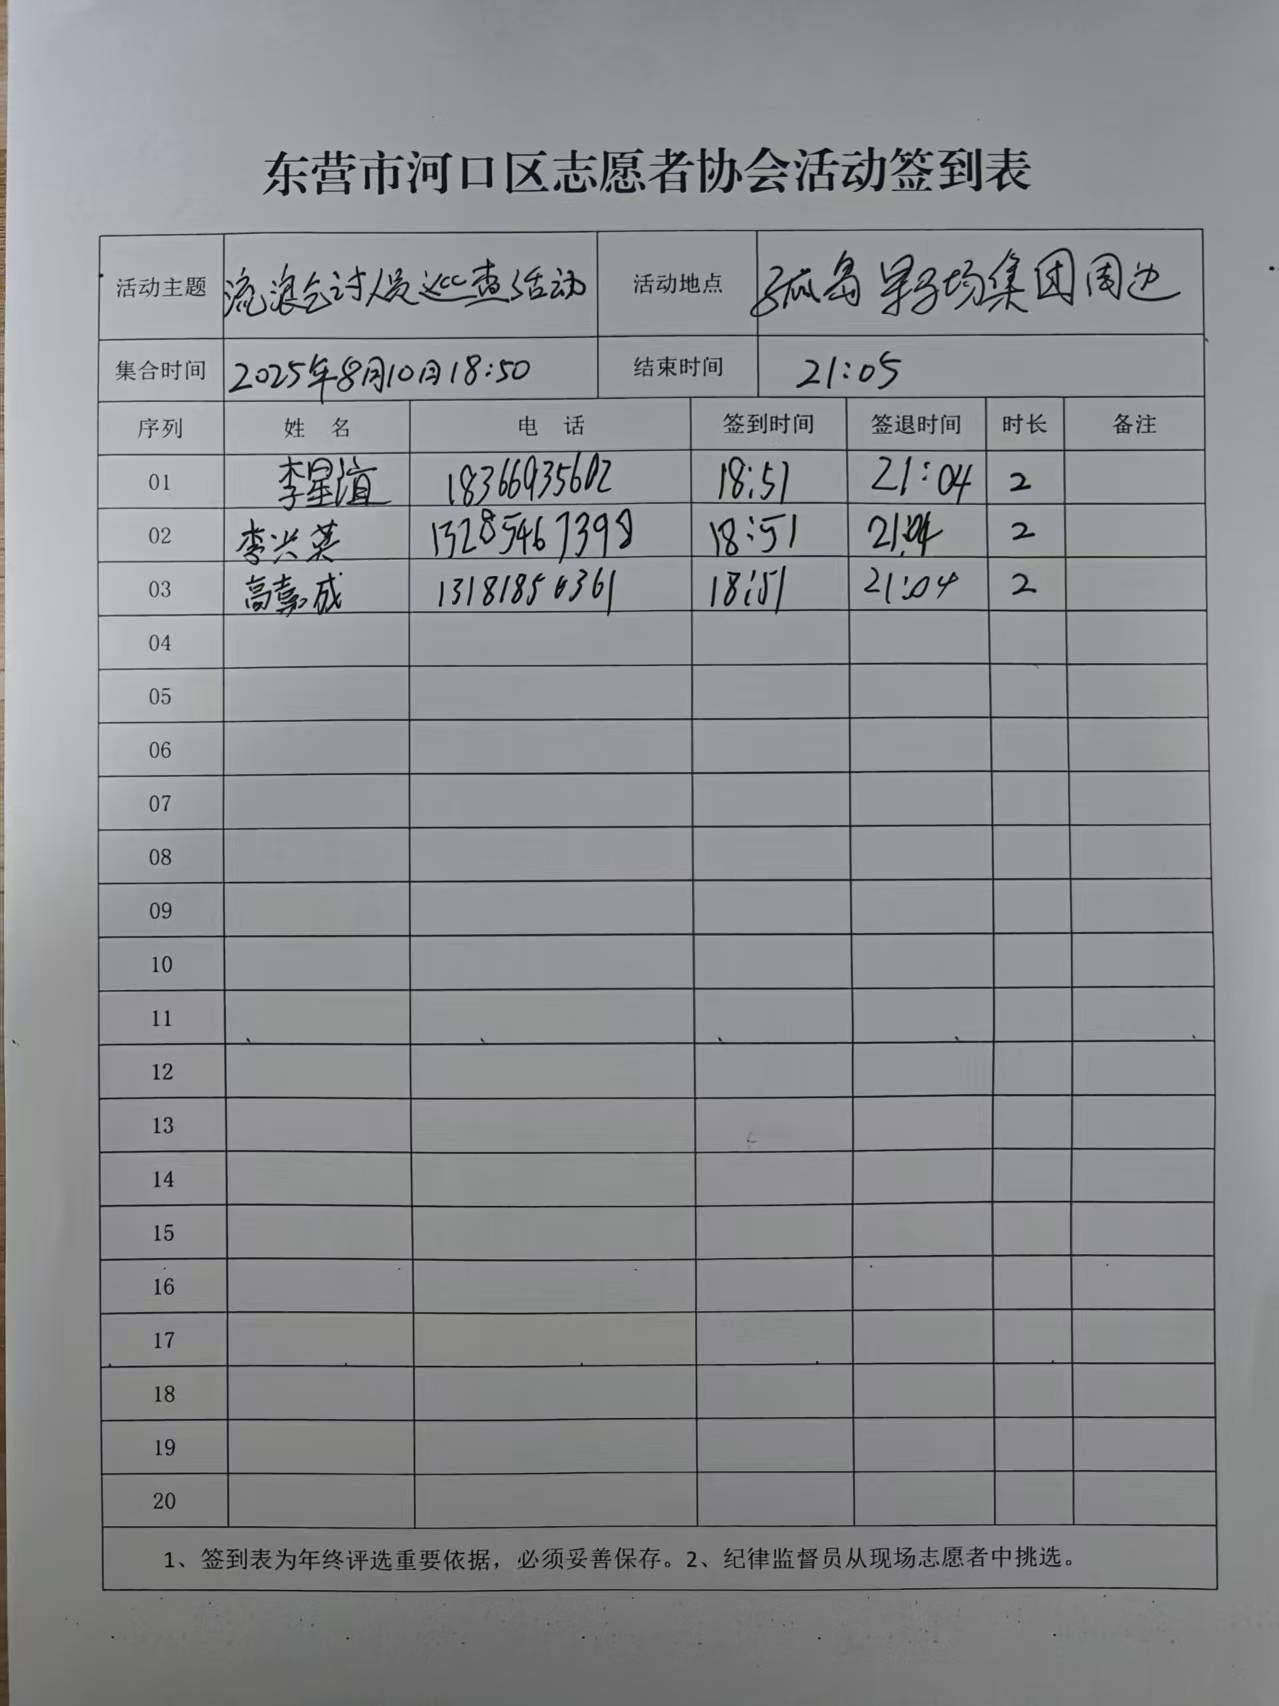 东营市河口区志愿者协会活动签到表
活动主题 流浪乞讨人员巡查活动 活动地点 孤岛 集团周边
集合时间 2025年8月10日18:50 结束时间 21:05
序列 姓 名 电 话 签到时间 签退时间 时长 备注
01 李星谊 18366935602 18:51 21:04 2
02 李兴英 13285467398 18:51 21:04 2
03 高嘉成 13181856361 18:51 21:04 2
04
05
06
07
08
09
10
11
12
13
14
15
16
17
18
19
20
1、签到表为年终评选重要依据，必须妥善保存。2、纪律监督员从现场志愿者中挑选。